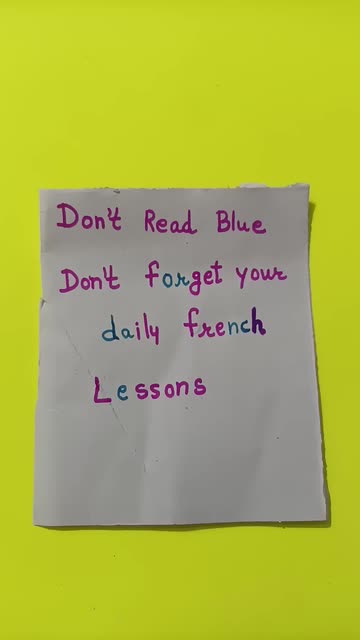 Don't Read Blue
Don't forget your
daily french
Lessons